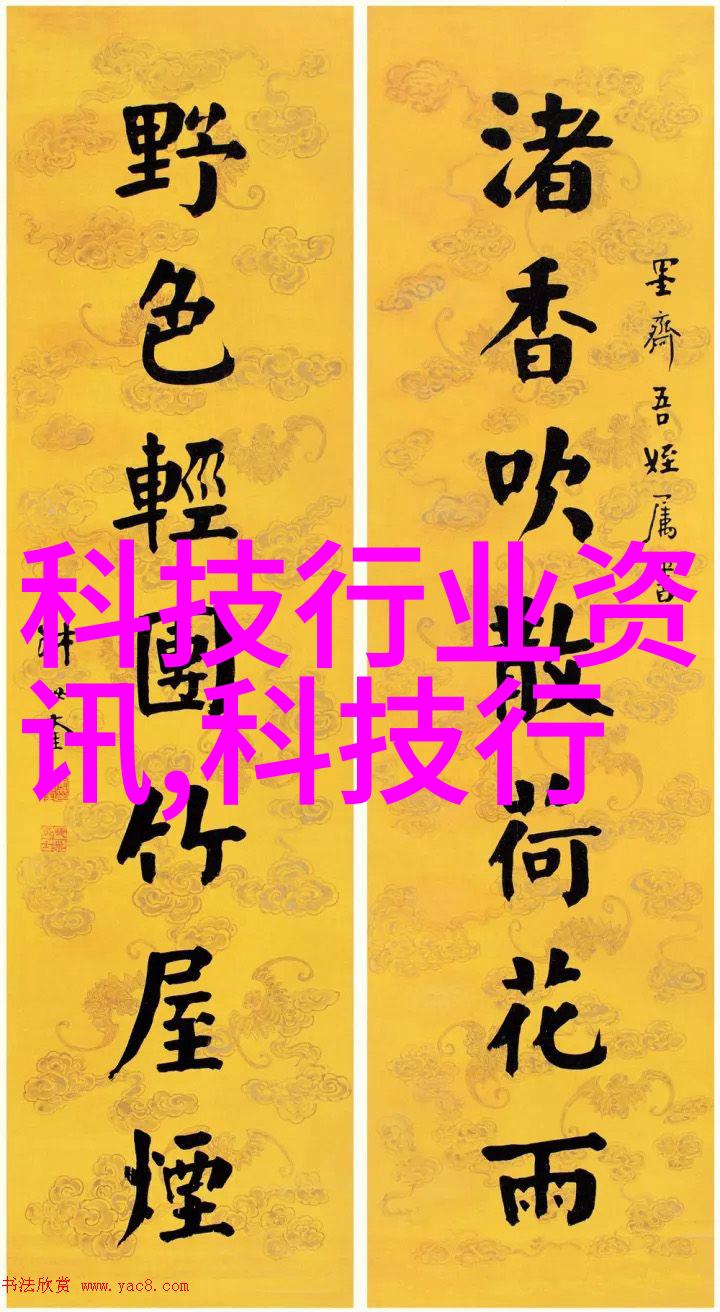 渚香吹散荷花雨
墨齋吾姪属書
野色輕團竹屋煙
科技行业资
讯,科技行
书法欣赏 www.yac8.com